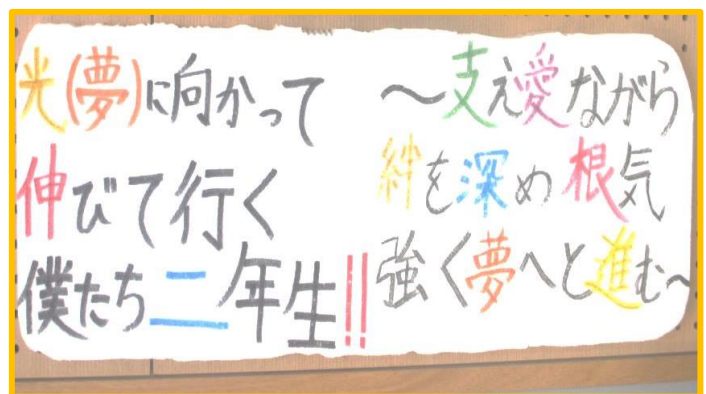 光(夢)に向かって
伸びて行く
僕たち二年生!!
～支え愛ながら
絆を深め根気
強く夢へと進む～